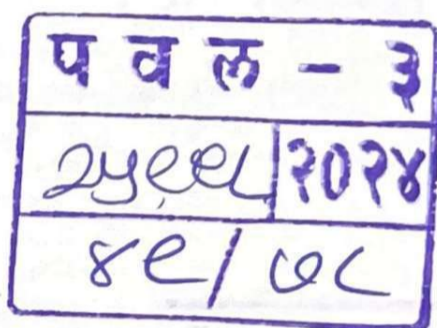 प व ल - ३
२५९९८ २०२४
४९/७८